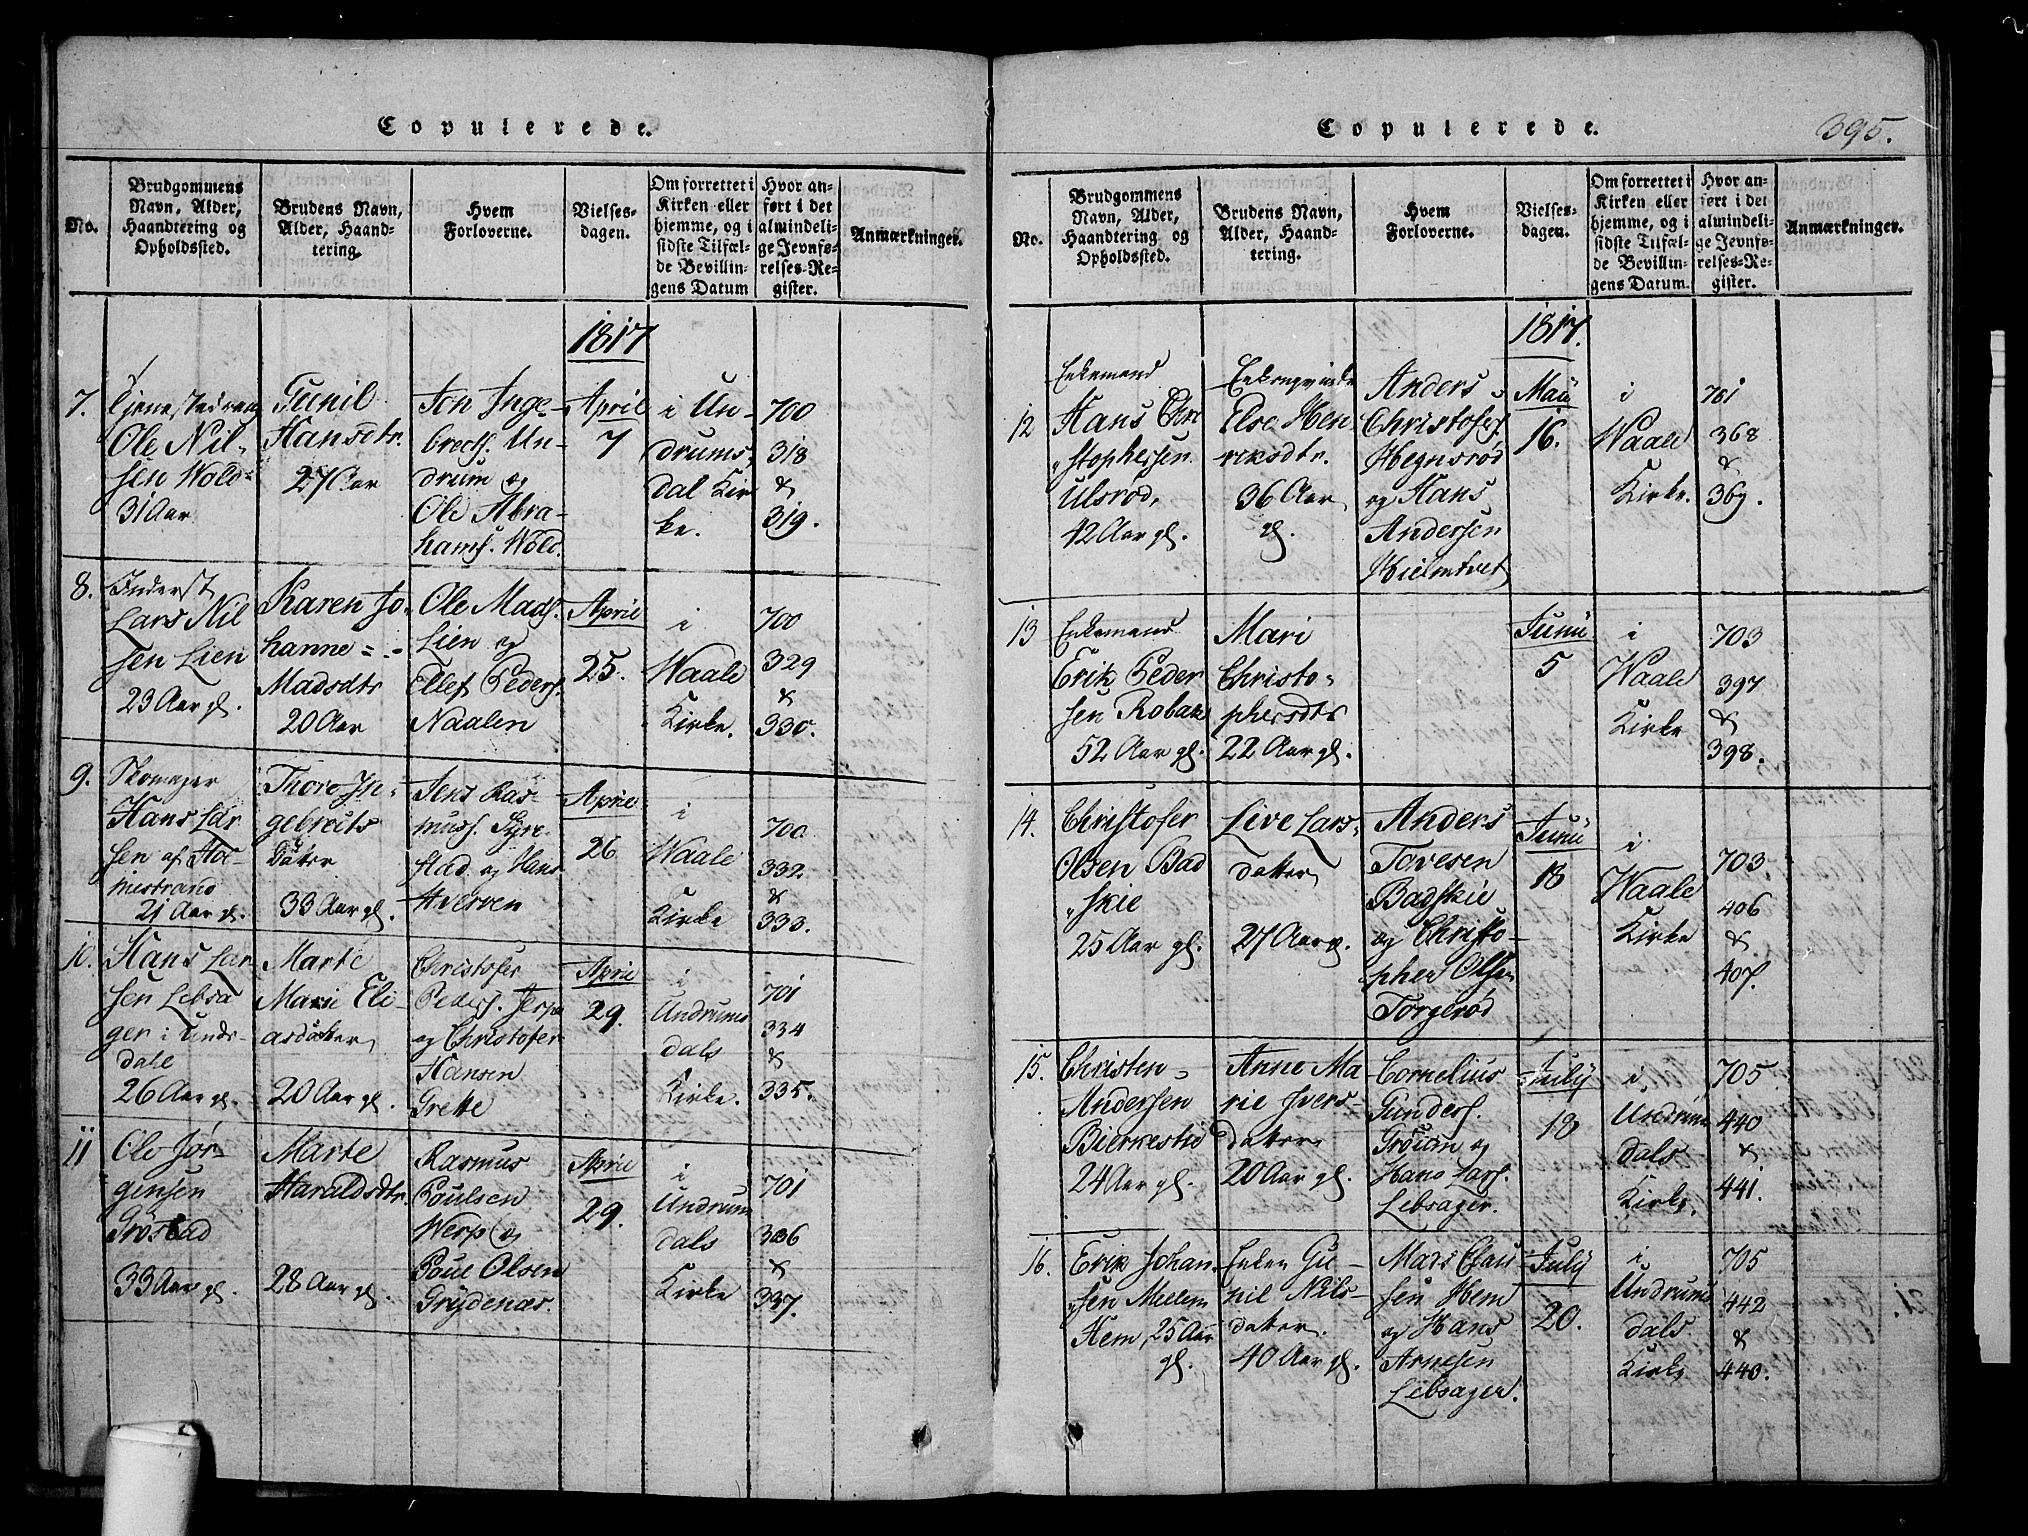 Copulerede.
No.
Brudgommens
Navn, Alder,
Haandtering og
Opholdssted.
Brudens Navn,
Alder, Haand-
tering.
Hvem
Forloverne.
Vielses-
dagen.
Om forrettet i
Kirken eller
hjemme, og i
sidste Tilfæl-
de Bevillin-
gens Datum
Hvor an-
ført i det
almindeli-
ge Jevnfø-
relses-Re-
gister.
Anmærkninger.
1817
7.
Ole Nil-
sen Wold
31 Aar
Gunil
Hansdtr.
27 Aar
Jon Inge-
brects. Un-
drum og
Ole Abra-
hams. Wold.
April
7
i Un-
drums-
dal Kir
ke.
700
318
&
319.
8.
Inderst
Lars Nil
sen Lien
23 Aar gl.
Karen Jo-
hanne
Madsdtr
20 Aar
Ole Mads.
Lien og
Ellef Peders.
Naalen
April
25.
i
Waale
Kirke.
700
329
&
330.
9.
Skomager
Hans Lar
sen af Hol-
mestrand
21 Aar gl.
Thore In-
gebrects
Datter
33 Aar gl.
Jens Ras-
muss.
stad og Hans
April
26
i
Waale
Kirke
700
332
&
333.
10.
Hans Lar-
sen Lebsa
ger i Unds-
dahl
26 Aar gl.
Marte
Marie Eli-
asdatter
20 Aar gl.
Christofer
Peders. Jerpe
og Christofer
Hansen
Grette
April
29.
i
Undrums
dals
Kirke.
701
334
&
335.
11
Ole Jør-
gensen
33 Aar gl.
Marte
Haraldsdtr.
28 Aar gl.
Rasmus
Poulsen
Werp og
Poul Olsen
April
29.
i
Undrum
dals
Kirke
701
336
&
337.
Copulerede.
395.
No.
Brudgommens
Navn, Alder,
Haandtering og
Opholdssted.
Brudens Navn,
Alder, Haand-
tering.
Hvem
Forloverne.
Vielses-
dagen.
Om forrettet i
Kirken eller
hjemme, og i
sidste Tilfæl-
de Bevillin-
gens Datum.
Hvor an-
ført i det
almindeli-
ge Jevnfø-
relses-Re-
gister.
Anmærkninger.
1817.
12
Enkemand
Hans Chri
stophersen
Ulsrød,
42 Aar gl.
Enkeqvinde
Else Hen
riksdtr.
36 Aar
gl.
Anders
Christofers.
Hegnsrød
og Hans
Andersen
Hielmtvet
Maii
16.
i
Waale
Kirke.
701
368
&
369.
13
Enkemand
Erik Peder
sen Robak
52 Aar gl.
Mari
Christo-
phersdtr
22 Aar gl.
Junii
5
i
Waale
Kirke
703
397
&
398.
14.
Christofer
Olsen Bad
skie
25 Aar gl.
Live Lars-
datter
27 Aar gl.
Anders
Tovesen
Badskie
og Christo-
pher Olsen
Torgerød
Junii
18
i
Waale
Kirke
703.
406
&
407.
15.
Christen
Andersen
24 Aar gl.
Anne Ma
rie Ivers-
datter
20 Aar gl.
Cornelius
Gunders.
og
Hans Lars.
Lebsager.
July
18
i
Undrum
dals
Kirke.
705
440
&
441.
16.
Erik Johan-
sen Mellem
Hem, 25 Aar
gl.
Enken Gu-
nil Nils-
datter.
40 Aar gl.
Mads Clau
sen Hem
og Hans
Arnesen
Lebsager.
July
20.
i
Undrums
dals
Kirke
705
442
&
443.